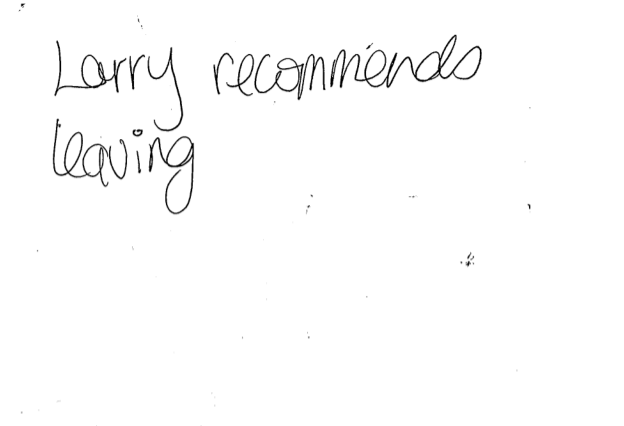 Larry recommends
leaving